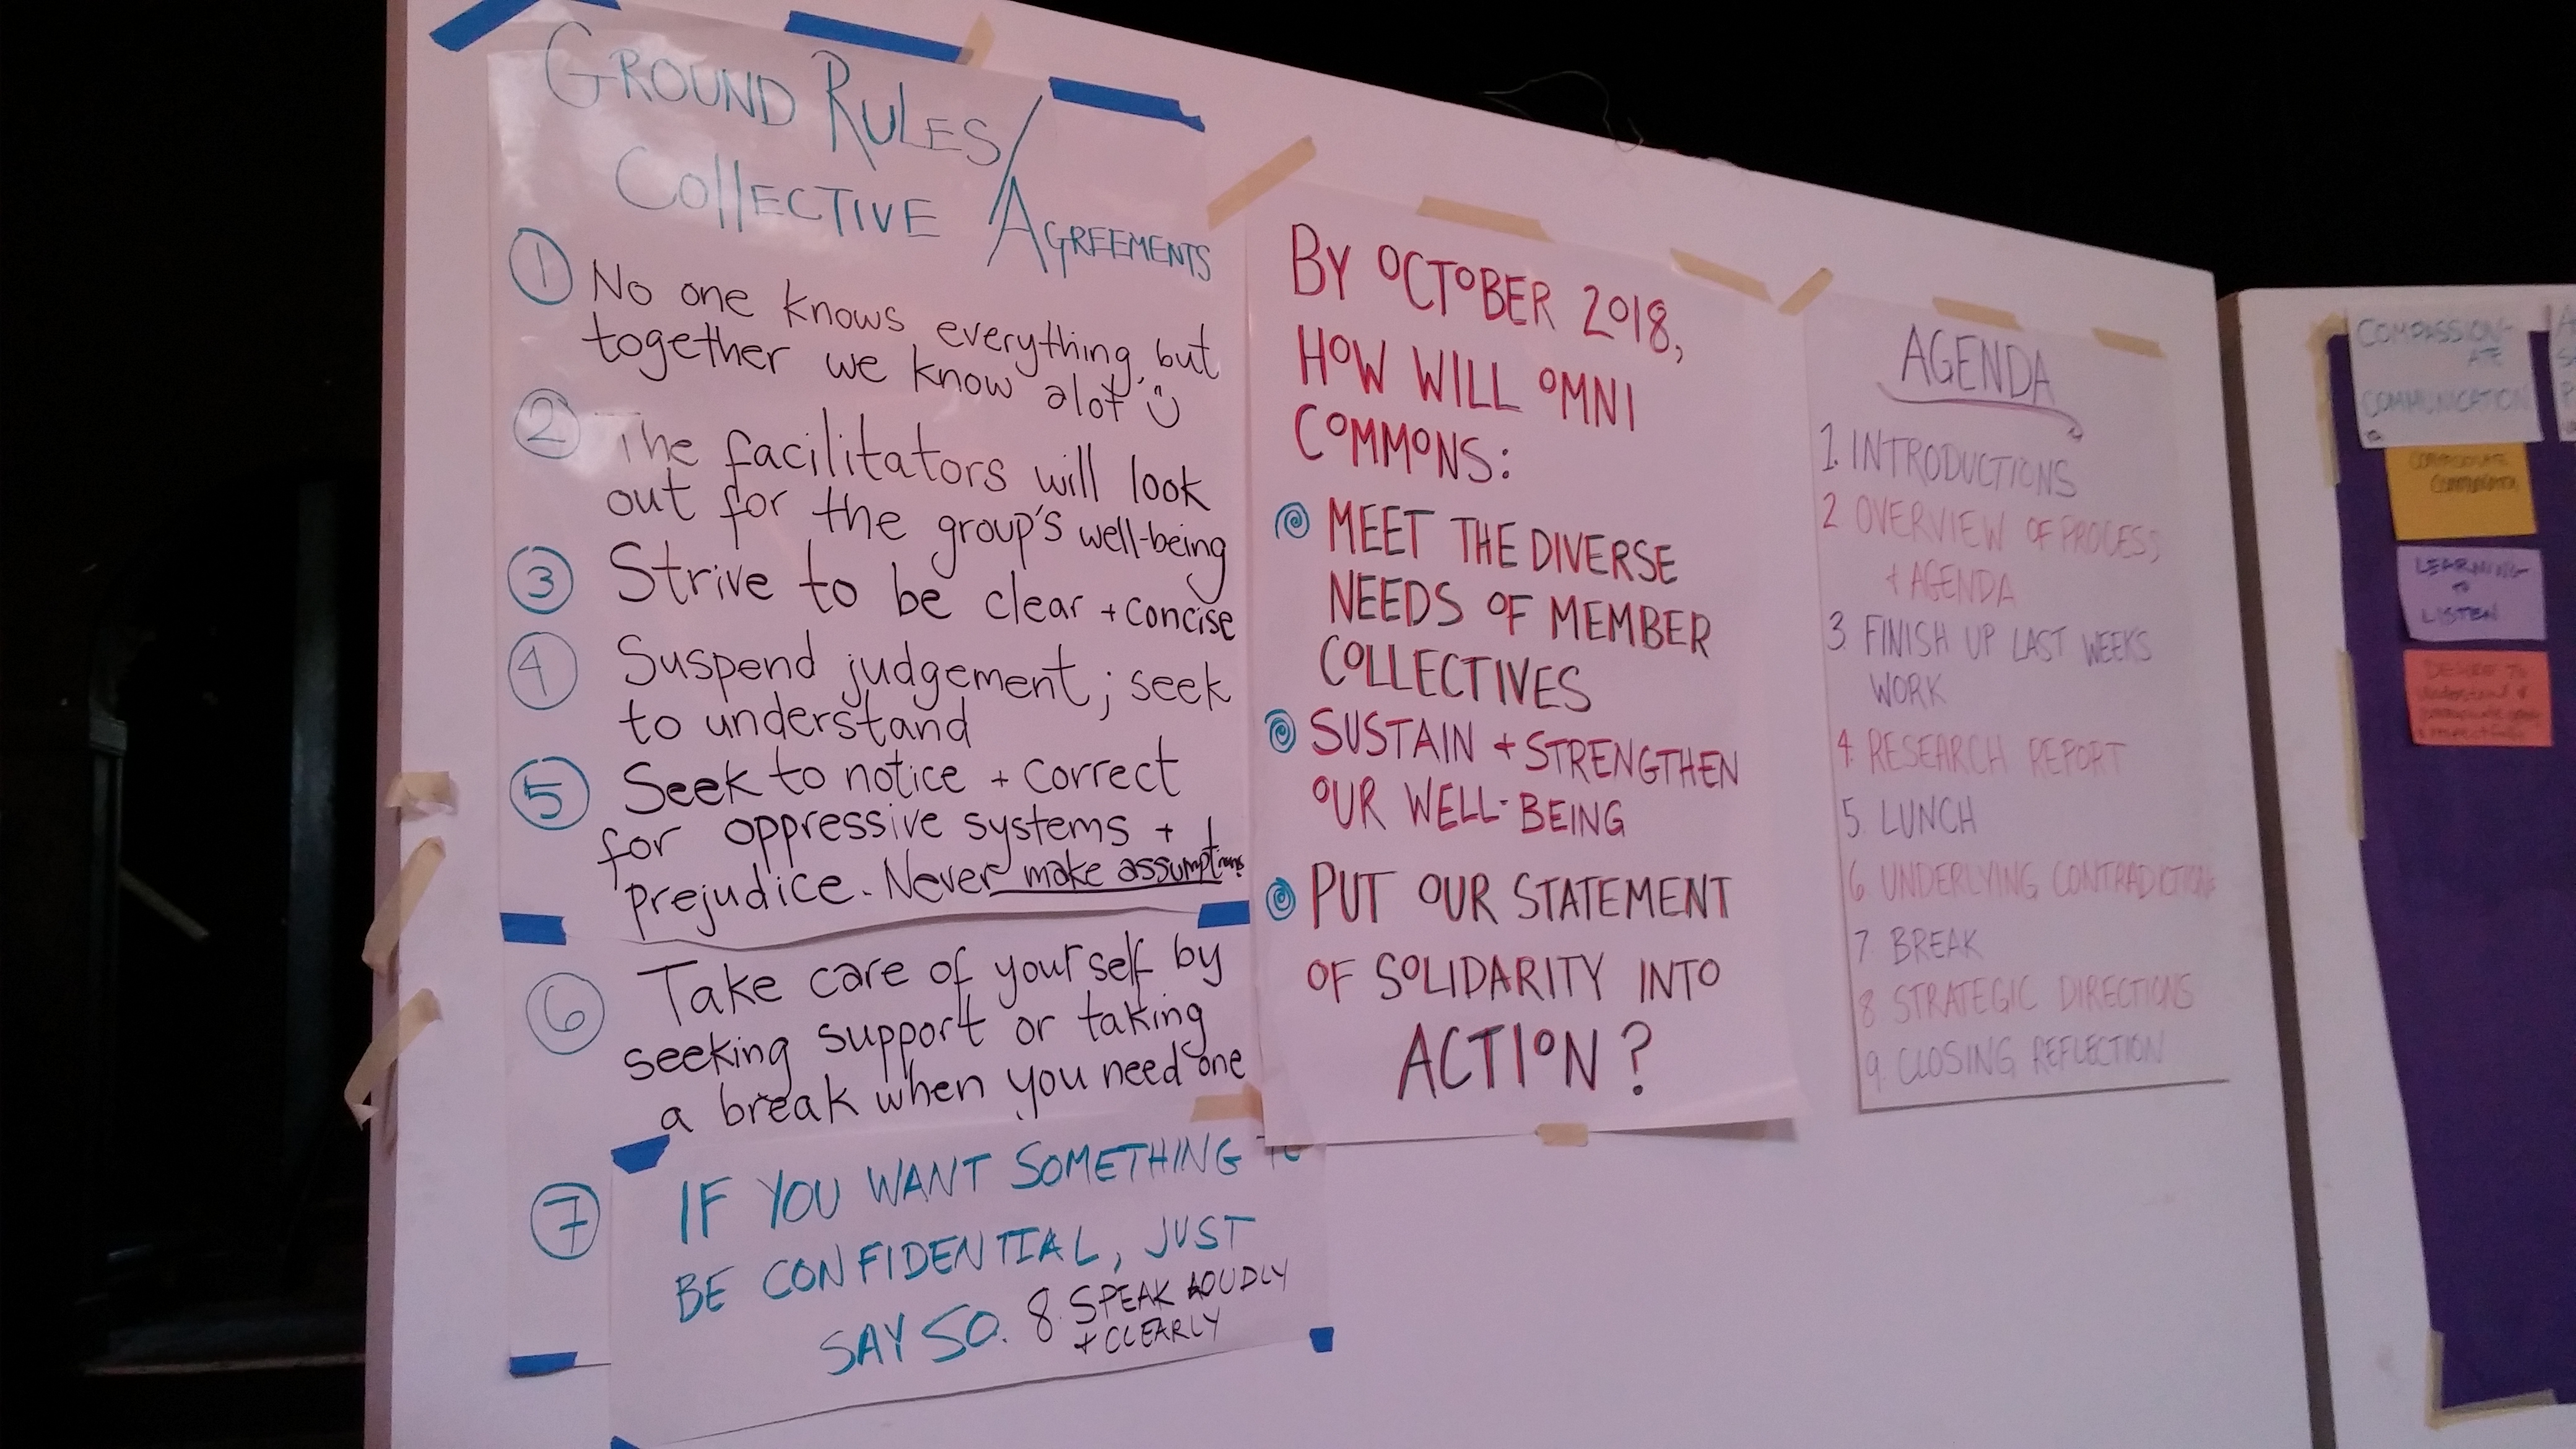 GROUND RULES/
COLLECTIVE AGREEMENTS
① No one knows everything, but
together we know alot ☺
② The facilitators will look
out for the group's well-being
③ Strive to be clear + concise
④ Suspend judgement; seek
to understand
⑤ Seek to notice + correct
for oppressive systems +
prejudice. Never make assumptions
⑥ Take care of yourself by
seeking support or taking
a break when you need one
⑦ IF YOU WANT SOMETHING TO
BE CONFIDENTIAL, JUST
SAY SO. 8. SPEAK LOUDLY
+ CLEARLY
BY OCTOBER 2018,
HOW WILL OMNI
COMMONS:
MEET THE DIVERSE
NEEDS OF MEMBER
COLLECTIVES
SUSTAIN + STRENGTHEN
OUR WELL-BEING
PUT OUR STATEMENT
OF SOLIDARITY INTO
ACTION?
AGENDA
1. INTRODUCTIONS
2 OVERVIEW OF PROCESS
+ AGENDA
3 FINISH UP LAST WEEKS
WORK
4. RESEARCH REPORT
5. LUNCH
6 UNDERLYING CONTRADICTIONS
7 BREAK
8 STRATEGIC DIRECTIONS
9. CLOSING REFLECTION
COMPASSION-
ATE
COMMUNICATION
LEARNING
TO
LISTEN
DESIRE TO
understand &